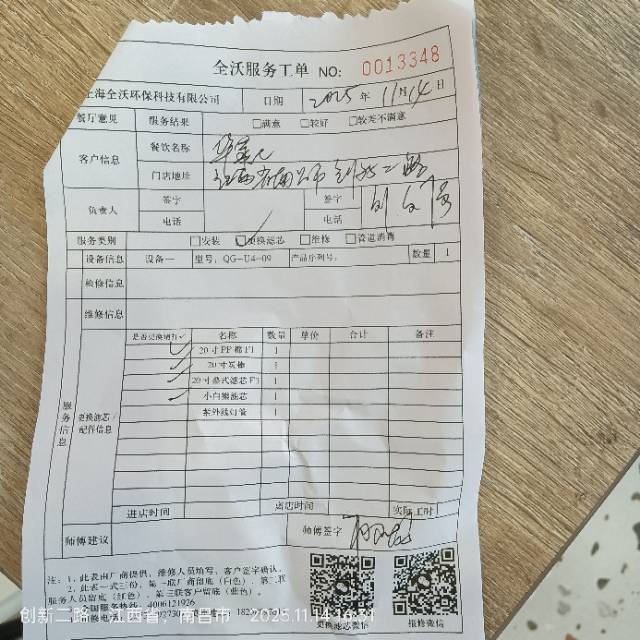 全沃服务工单 NO: 0013348
上海全沃环保科技有限公司 日期 2025年11月14日
餐厅意见 服务结果 □满意 □较好 □较差不满意
客户信息 餐饮名称 华莱士
门店地址 江西省南昌市创新二路
负责人 签字 签字
电话 电话
服务类别 □安装 ☑更换滤芯 □维修 □管道消毒
设备信息 设备一 型号: QG-U4-09 产品序列号: 数量 1
检修信息
维修信息
服务信息 更换滤芯/配件信息
是否更换请打✓ 名称 数量 单价 合计 备注
✓ 20寸PP棉F1 1
✓ 20寸炭棒 1
✓ 20寸叠式滤芯F1 1
✓ 小白鲸滤芯 1
紫外线灯管 1
进店时间 离店时间 实际工时
师傅建议 师傅签字
注:1、此表由厂商提供,维修人员填写,客户签字确认。
2、此表一式三份,第一联厂商留底(白色),第二联
人员留底(红色),第三联客户留底(蓝色)。
全国服务热线:4006121926
更换滤芯微信 报修微信
创新二路,江西省,南昌市 2025.11.14